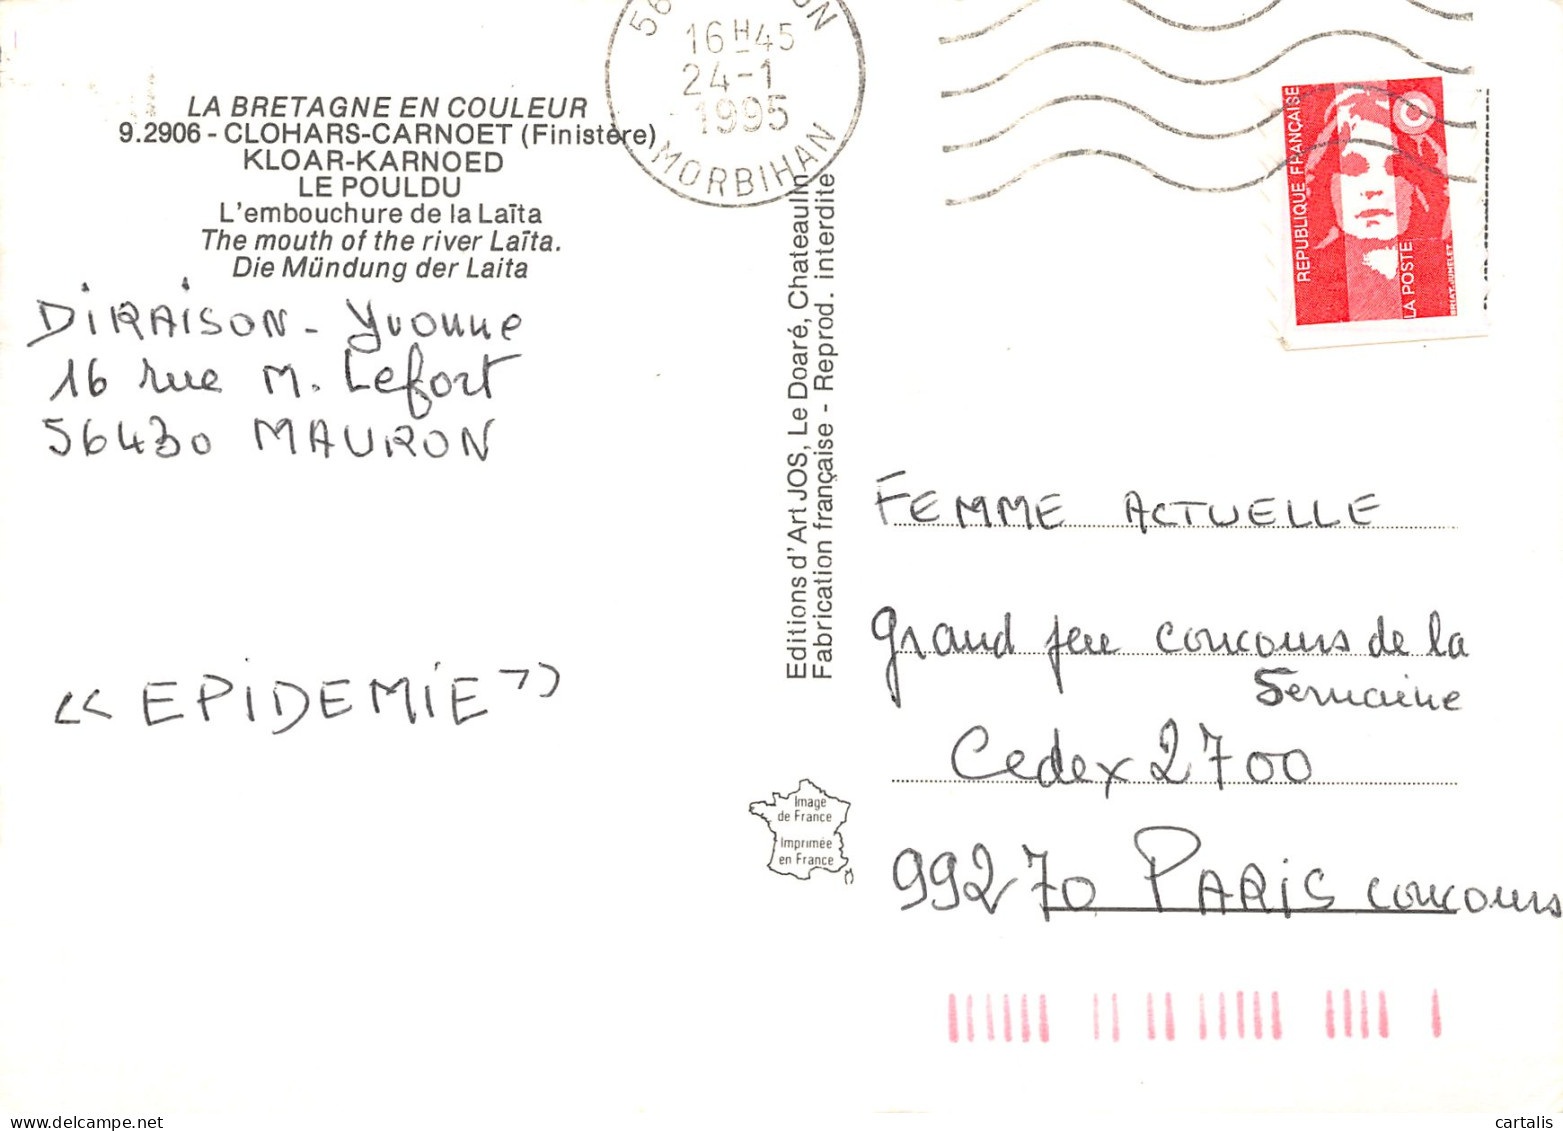 LA BRETAGNE EN COULEUR
9.2906 - CLOHARS-CARNOET (Finistère)
KLOAR-KARNOED
LE POULDU
L'embouchure de la Laïta
The mouth of the river Laïta.
Die Mündung der Laita
DiRAiSON - Yvonne
16 rue M. Lefort
56430 MAURON
<< EPiDEMiE >>
16H45
24-1
1995
MORBIHAN
Editions d'Art JOS, Le Doaré, Chateaulin
Fabrication française - Reprod. interdite
Image
de France
Imprimée
en France
REPUBLIQUE FRANÇAISE
LA POSTE
BRIAT-JUMELET
FEMME ACTUELLE
Grand jeu concours de la
Semaine
Cedex 2700
99270 PARiS concours
cartalis